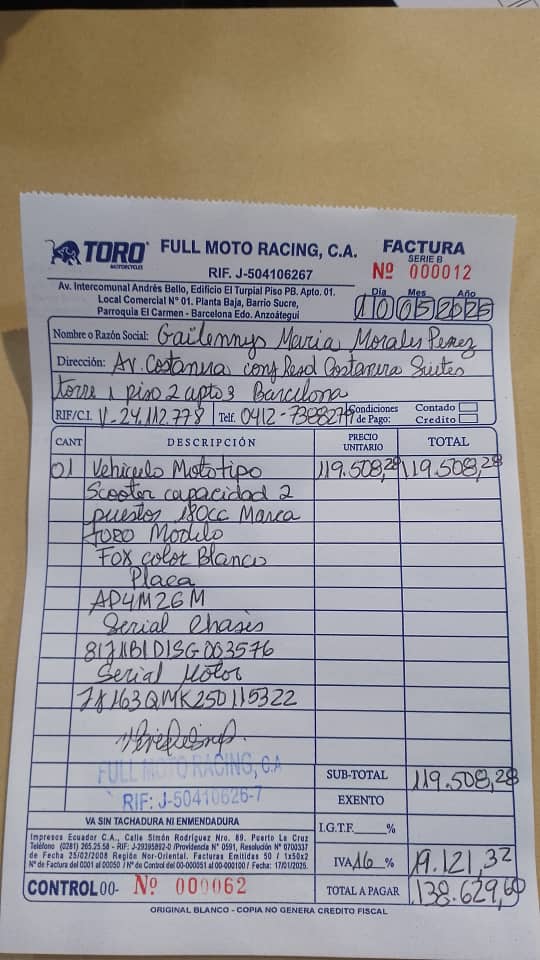 TORO FULL MOTO RACING, C.A. FACTURA
MOTORCYCLES
SERIE B
RIF. J-504106267 Nº 000012
Av. Intercomunal Andrés Bello, Edificio El Turpial Piso PB. Apto. 01.
Local Comercial Nº 01. Planta Baja, Barrio Sucre,
Parroquia El Carmen - Barcelona Edo. Anzoátegui
Día Mes Año
10 05 2025
Nombre o Razón Social: Gailennys Maria Morales Perez
Dirección: Av. Costanera conj Resd Costanera Suites
torre 1 piso 2 apto 3 Barcelona
RIF/C.I. V-24.112.778 Telf. 0412-7388279 Condiciones de Pago: Contado
Credito
CANT DESCRIPCIÓN PRECIO UNITARIO TOTAL
01 Vehiculo Moto tipo 119.508,28 119.508,28
Scooter capacidad 2
puestos 180cc Marca
TORO Modelo
FOX color Blanco
Placa
AP4M26M
Serial Chasis
Serial Motor
FULL MOTO RACING, C.A
RIF: J-50410626-7
SUB-TOTAL 119.508,28
EXENTO
VA SIN TACHADURA NI ENMENDADURA
I.G.T.F.____%
Impresos Ecuador C.A., Calle Simón Rodríguez Nro. 89. Puerto La Cruz
Teléfono (0281) 265.25.58 - RIF: J-29395892-0 /Providencia Nº 0591, Resolución Nº 0700337
de Fecha 25/02/2008 Región Nor-Oriental. Facturas Emitidas 50 / 1x50x2
Nº de Factura del 0001 al 00050 / Nº de Control del 00-000051 al 00-000100 / Fecha: 17/01/2025.
IVA 16 % 19.121,32
CONTROL 00- Nº 000062
TOTAL A PAGAR 138.629,60
ORIGINAL BLANCO - COPIA NO GENERA CREDITO FISCAL